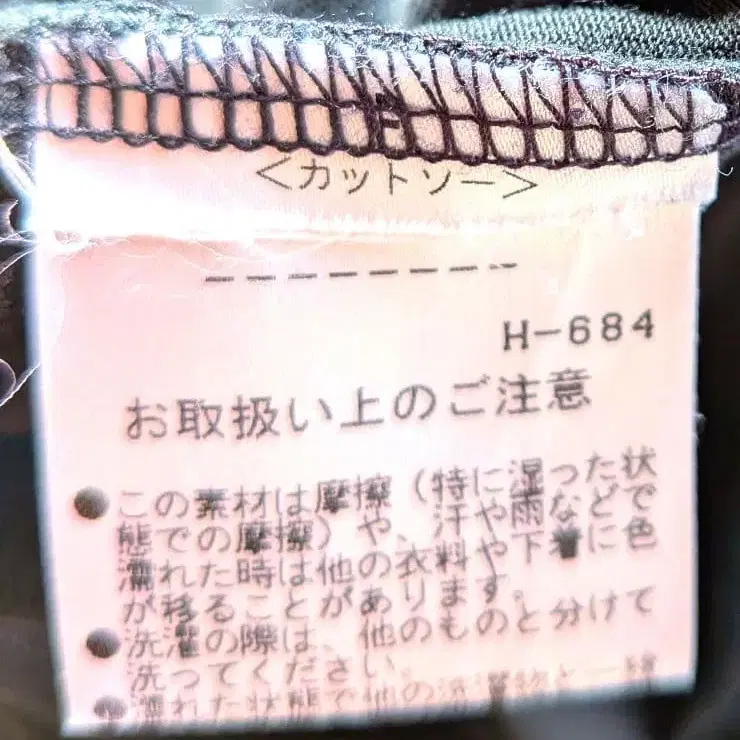 <カットソー>
--------
H-684
お取扱い上のご注意
●この素材は摩擦(特に湿った状
態での摩擦)や、汗や雨などで
濡れた時は他の衣料や下着に色
が移ることがあります。
●洗濯の際は、他のものと分けて
洗ってください。
●濡れた状態で他の洗濯物と一緒